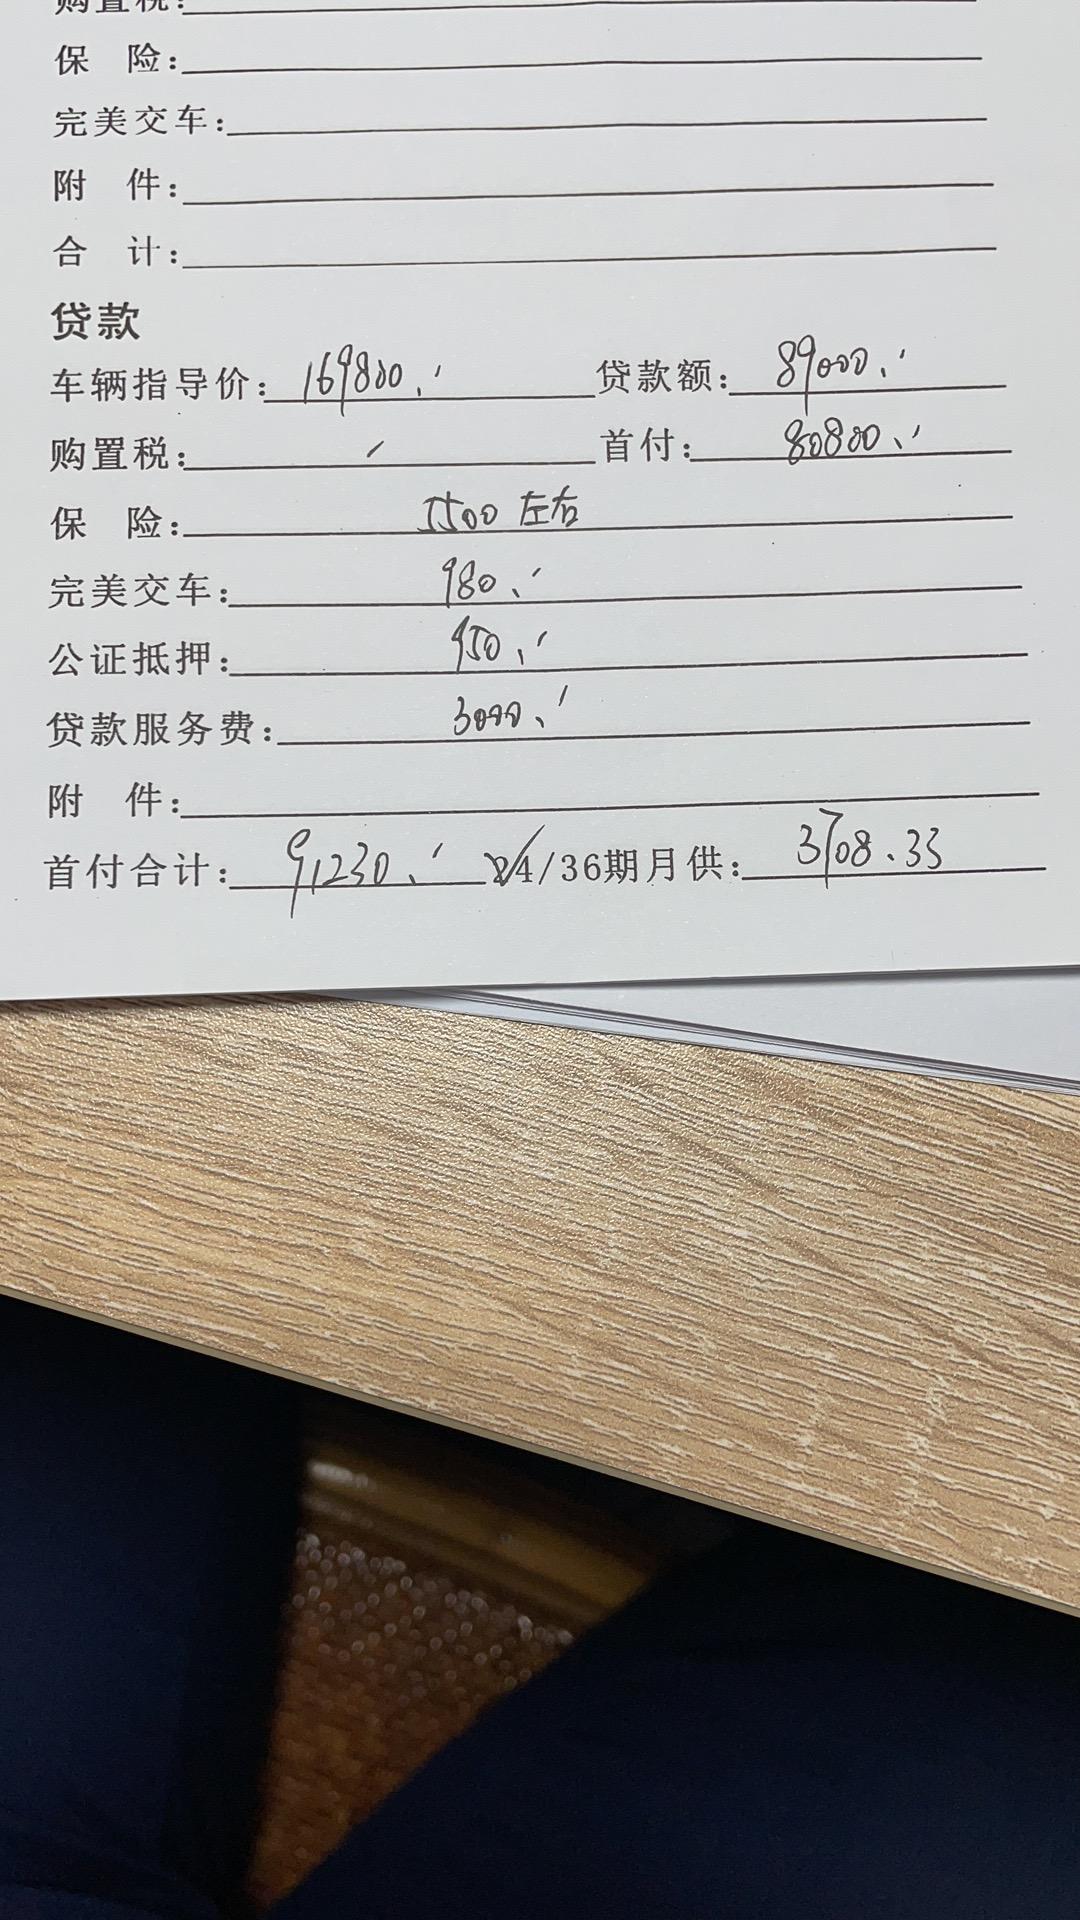 购置税:
保 险:
完美交车:
附 件:
合 计:
贷款
车辆指导价: 169800. 贷款额: 89000.
购置税: / 首付: 80800.
保 险: 5500 左右
完美交车: 980.
公证抵押: 950.
贷款服务费: 3000.
附 件:
首付合计: 91230. 24/36期月供: 3708.33